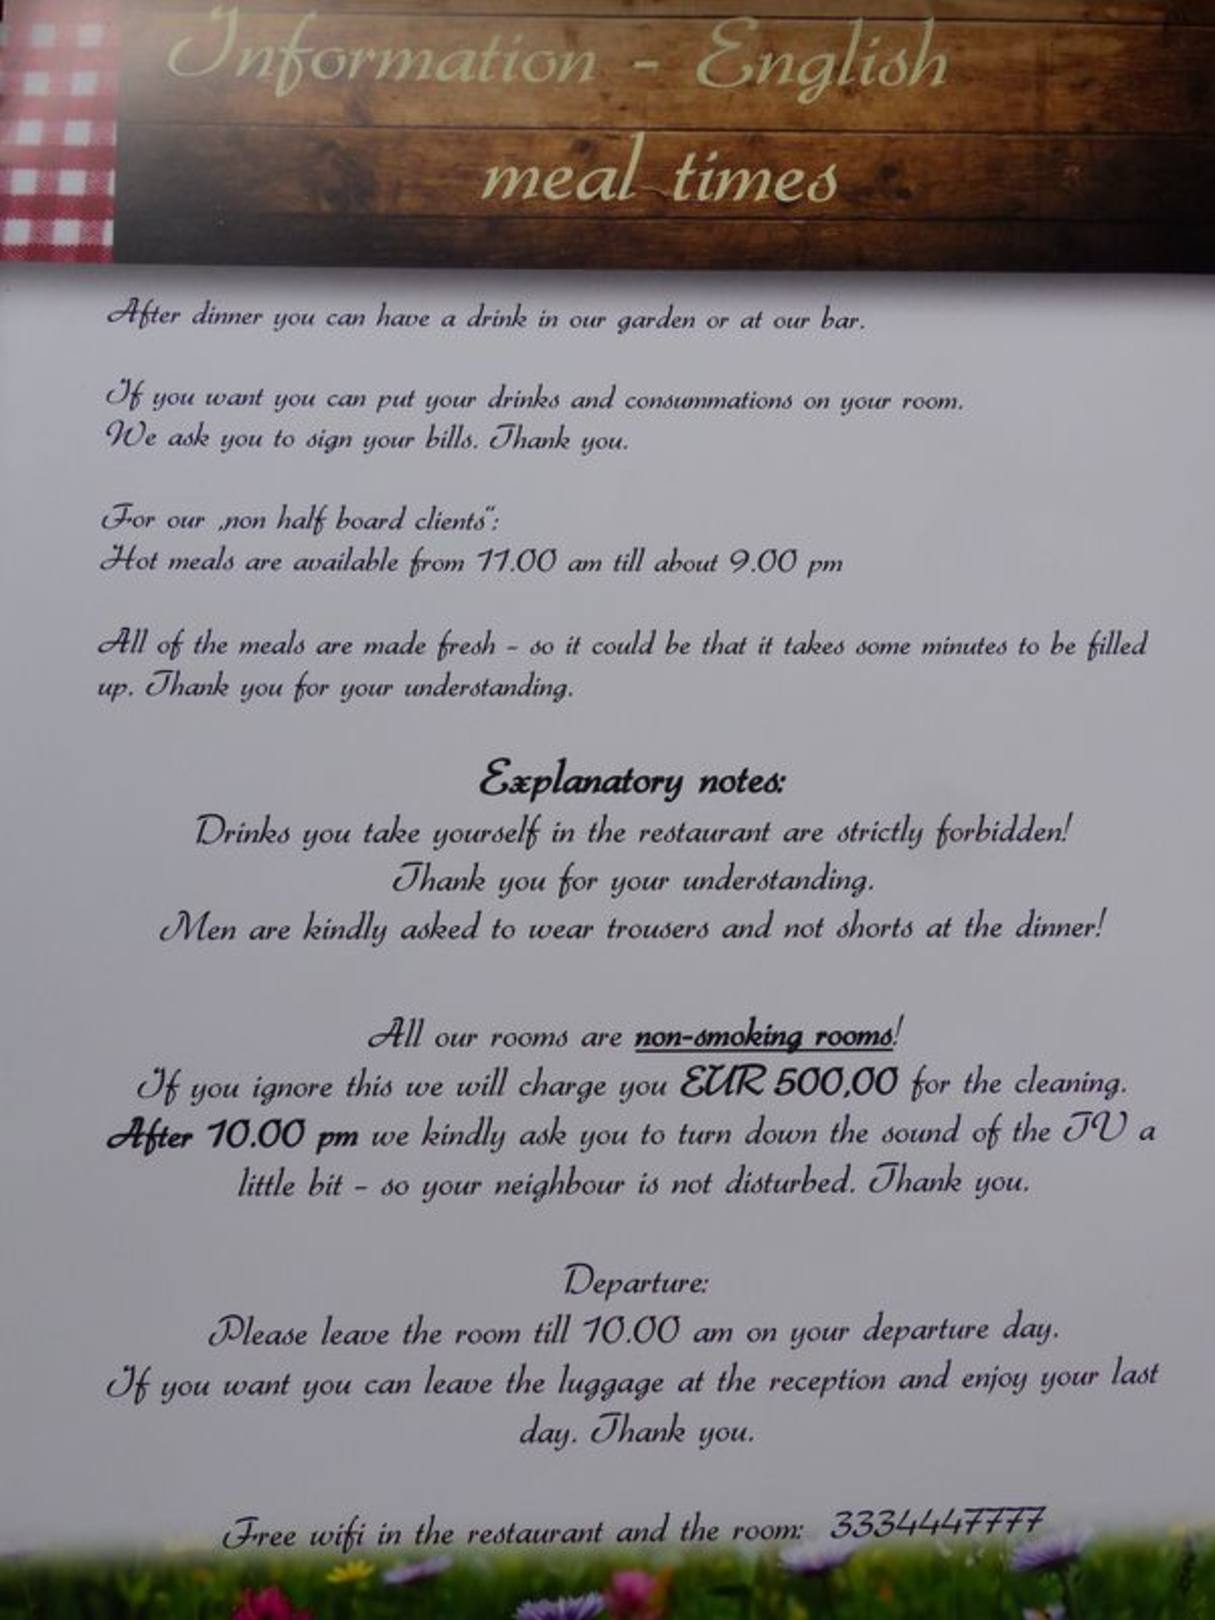 Information - English
meal times
After dinner you can have a drink in our garden or at our bar.
If you want you can put your drinks and consummations on your room.
We ask you to sign your bills. Thank you.
For our „non half board clients“:
Hot meals are available from 11.00 am till about 9.00 pm
All of the meals are made fresh - so it could be that it takes some minutes to be filled
up. Thank you for your understanding.
Explanatory notes:
Drinks you take yourself in the restaurant are strictly forbidden!
Thank you for your understanding.
Men are kindly asked to wear trousers and not shorts at the dinner!
All our rooms are non-smoking rooms!
If you ignore this we will charge you EUR 500,00 for the cleaning.
After 10.00 pm we kindly ask you to turn down the sound of the TV a
little bit - so your neighbour is not disturbed. Thank you.
Departure:
Please leave the room till 10.00 am on your departure day.
If you want you can leave the luggage at the reception and enjoy your last
day. Thank you.
Free wifi in the restaurant and the room: 3334447777